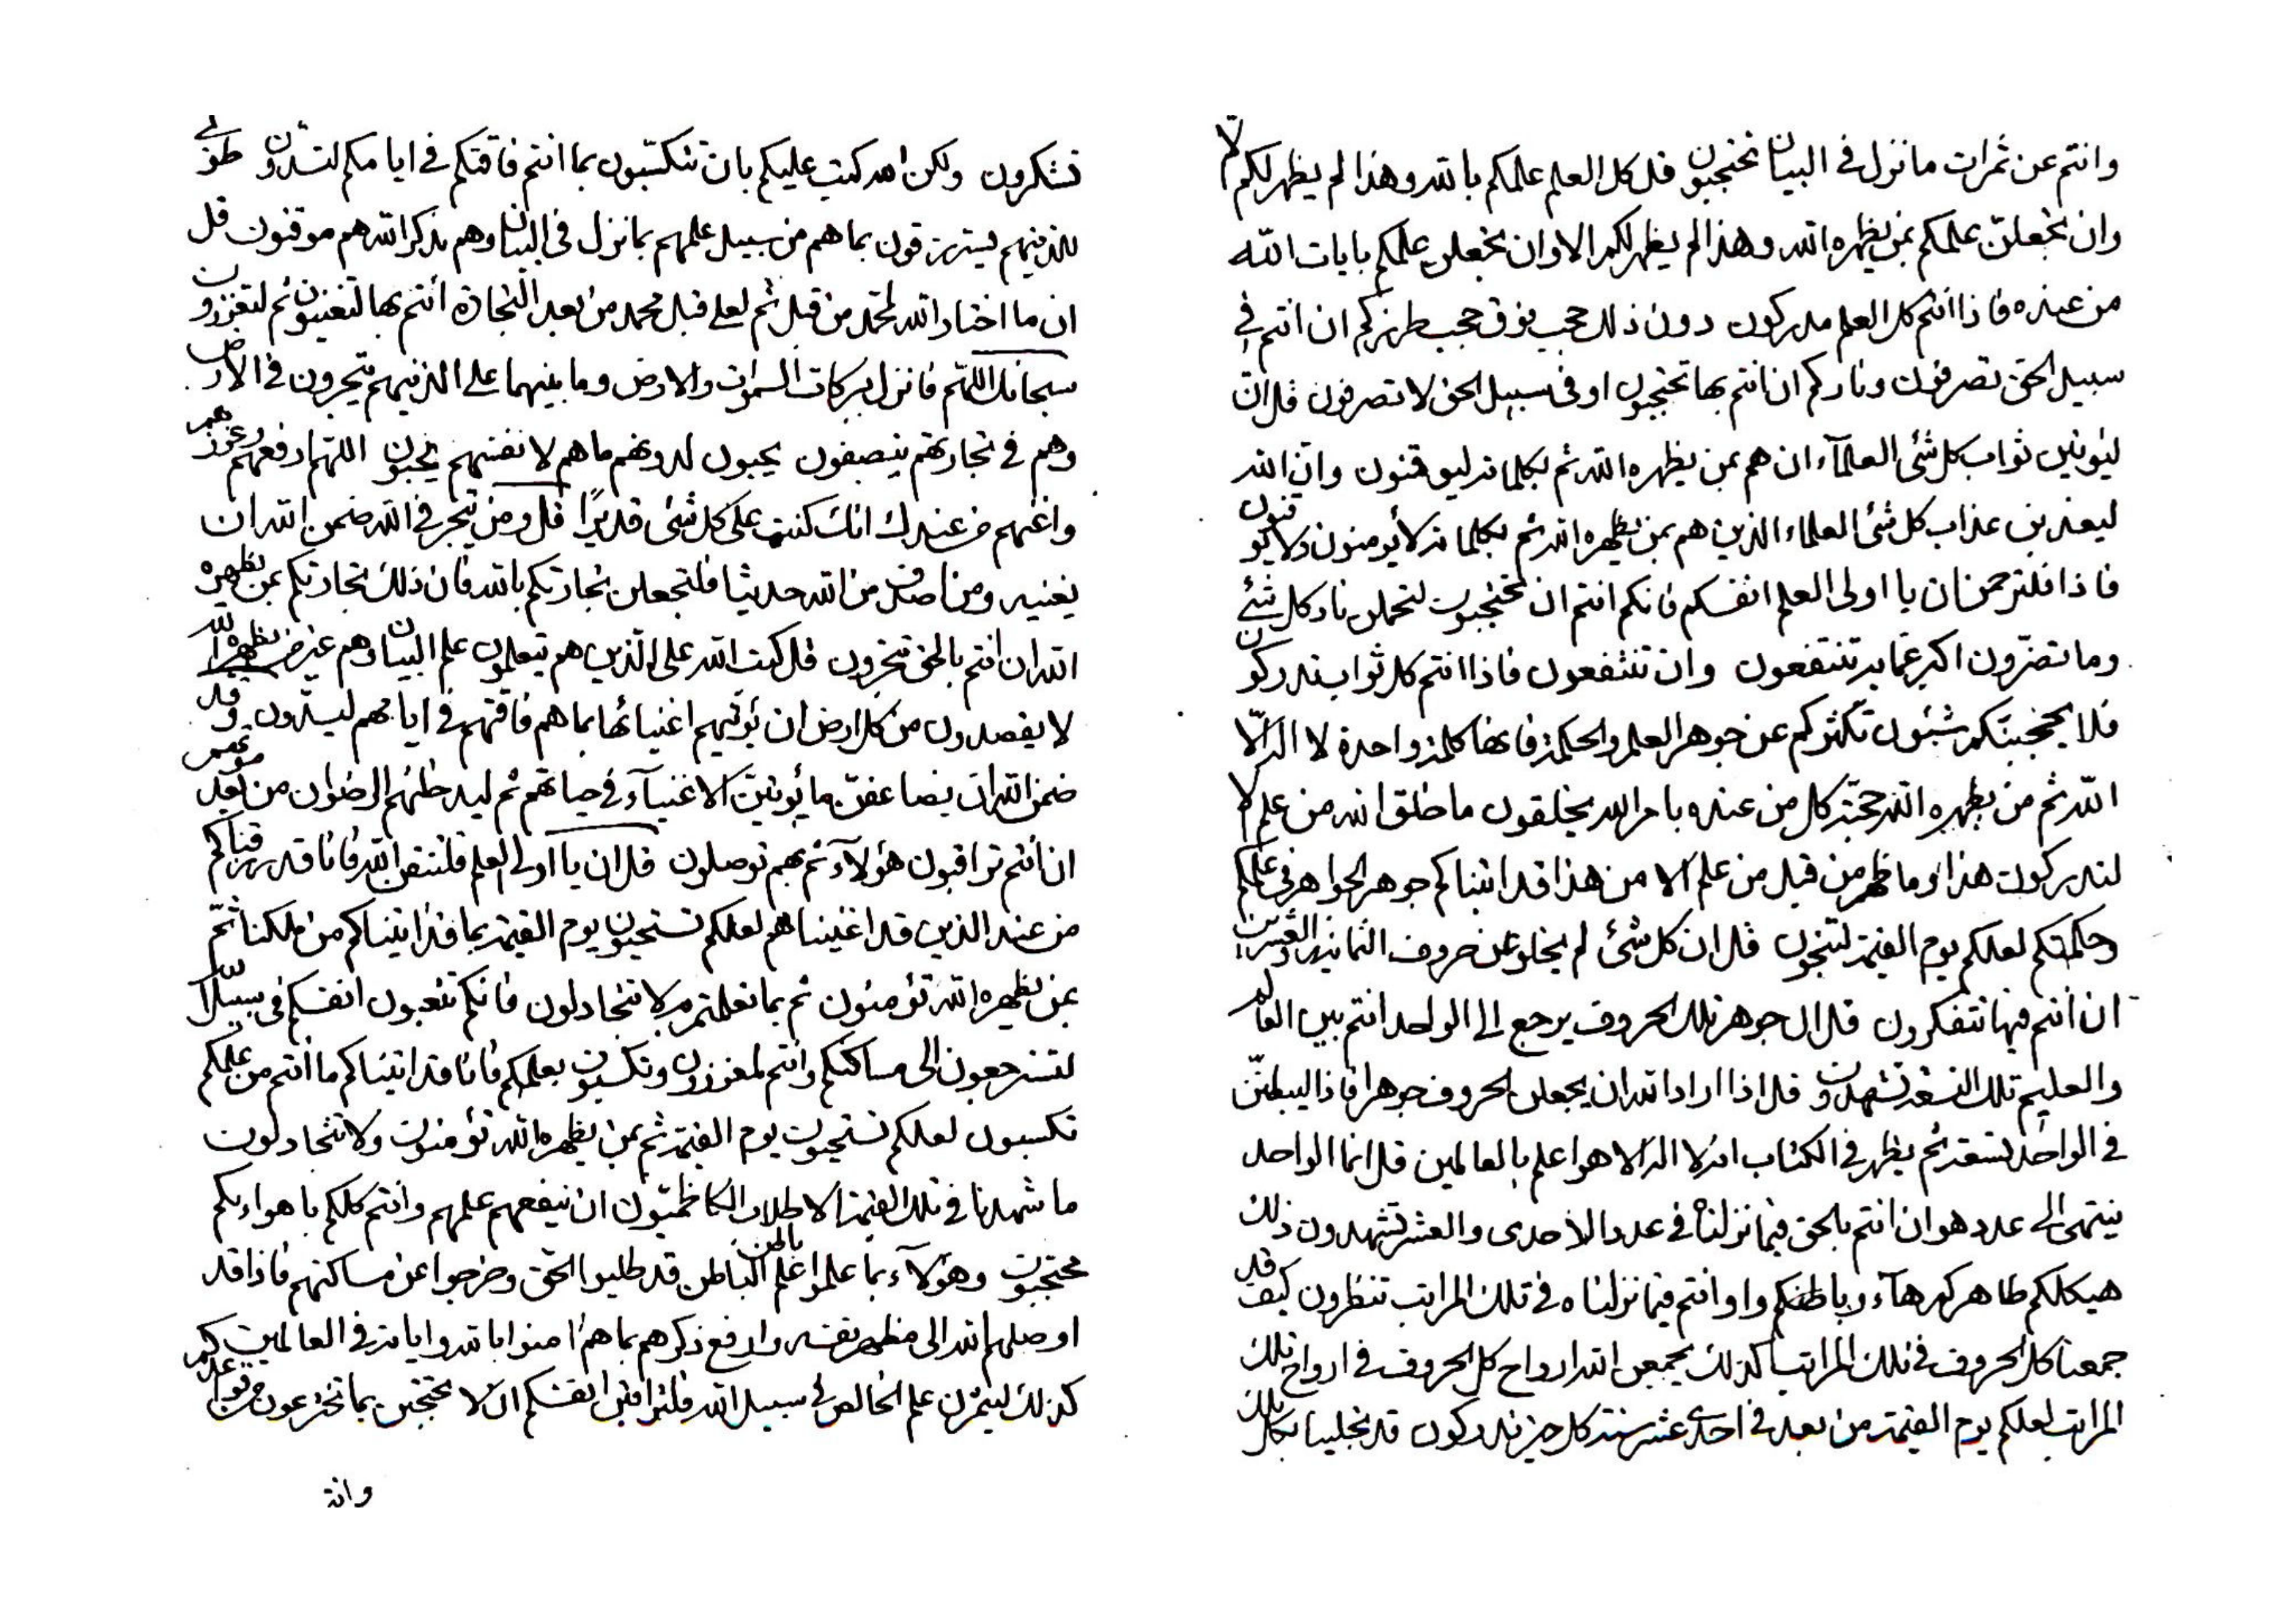 وانتم عن ثمرات ما نزل في البيان تحتجبون قل كل العلم علمكم بالله وهذا لم يظهر لكم الا
وان تجعلن علمكم بمن يظهره الله وهذا لم يظهر لكم الا وان تجعلن علمكم بايات الله
من عنده فاذا انتم كل العلم مدركون دون ذلك حجب فوق حجب طرزكم ان انتم في
سبيل الحق تصرفون وناركم ان انتم بها تحتجبون او في سبيل الحق لا تصرفون قل ان
ليؤتين ثواب كل شئ العلمآء ان هم بمن يظهره الله ثم بكلماته ليوقنون وان الله
ليعذبن عذاب كل شئ العلماء الذين هم بمن يظهره الله ثم بكلماته لا يؤمنون ولا يوقنون
فاذا فلترحمن ان يا اولى العلم انفسكم فانكم انتم ان تحتجبون لتحملن نار كل شئ
وما تضرون اكبر عما به تنتفعون وان تنتفعون فاذا انتم كل ثواب تدركون
فلا يحجبنكم شئون تكثركم عن جوهر العلم والحكمة فانها كلمة واحدة لا اله الا
الله ثم من يظهره الله حجته كل من عنده بامر الله يخلقون ما خلق الله من علم الا
لتدركون هذا وما ظهر من قبل من علم الا من هذا قد اتيناكم جوهر الجواهر في علمكم
وحكمتكم لعلكم يوم القيمة لتنجون قل ان كل شئ لم يخلو عن حروف الثمانية والعشرين
ان انتم فيها تتفكرون قل ان جوهر تلك الحروف يرجع الى الواحد انتم بين العالم
والعليم تلك التسعة تشهدون قل اذا اراد الله ان يجعلن الحروف جوهرا فاذا ليبطنن
في الواحد تسعة ثم يظهر في الكتاب انه لا اله الا هو اعلم بالعالمين قل انما الواحد
ينتهى الى عدد هو ان انتم بالحق فيما نزلناه في عدد الاحدى والعشر تشهدون ذلك
هيكلكم ظاهركم هآء وباطنكم واو انتم فيما نزلناه في تلك المراتب تنظرون كيف قد
جمعنا كل الحروف في تلك المراتب كذلك يجمعن الله ارواح كل الحروف في ارواح تلك
المراتب لعلكم يوم القيمة من بعد في احدى عشر سنة كل حيز تدركون قد تجلينا بكل ذلك
تشكرون ولكن الله كتب عليكم بان تتكسبون بما انتم فاقتكم في ايامكم لتسدون طوبى
للذينهم يسترزقون بما هم من سبيل علمهم بما نزل في البيان وهم بذكر الله هم موقنون قل
ان ما اختار الله لمحمد من قبل ثم لعلي قبل محمد من بعد التجارة انتم بها لتغنيون ثم لتعززون
سبحانك اللهم فانزل بركات السموات والارض وما بينهما على الذينهم يتجرون في الارض
وهم في تجارتهم ينصفون يحبون لدونهم ما هم لانفسهم يحبون اللهم ارفعهم وعززهم
واغنهم من عندك انك كنت على كل شئ قديرا قل ومن يتجر في الله ضمن الله ان
يغنيه ومن اصدق من الله حديثا فلتجعلن تجارتكم بالله فان ذلك تجارتكم بمن يظهره
الله ان انتم بالحق تتجرون قل كتب الله على الذين هم يتعلمون علم البيان وهم غير من يظهره الله
لا يقصدون من كل ارض ان يؤتيهم اغنيائها بما هم فاقتهم في ايامهم ليسدون وقد
ضمن الله ان يضاعفن ما يؤتين الاغنيآء في حياتهم ثم ليدخلنهم الرضوان من بعد موتهم
ان انتم تراقبون هؤلآء ثم بهم توصلون قل ان يا اولى العلم فلتتقن الله فانا قد رزقناكم
من عند الذين قد اغنيناهم لعلكم تستحيون يوم القيمة بما قد اتيناكم من ملكنا ثم
بمن يظهره الله تؤمنون ثم بما تعلمتم به لا تتجادلون فانكم تتعبون انفسكم في سبيل الله
لتسترجعون الى مساكنكم وانتم لمعززون وتكسبون بعلمكم فانا قد اتيناكم ما انتم من علمكم
تكسبون لعلكم تستحيون يوم القيمة ثم بمن يظهره الله تؤمنون ولا تتجادلون
ما شهدنا في تلك القيمة الا طلاب الكاظميون ان ينفعهم علمهم وانتم كلكم باهوائكم
محتجبون وهؤلآء بما علموا علم الباطن بالحق قد طلبوا الحق وخرجوا عن مساكنهم فاذا قد
اوصلهم الله الى مظهر نفسه وارفع ذكرهم بما هم امنوا بالله واياته في العالمين
كذلك ليثمرن علم الخالص في سبيل الله فلتراقبن انفسكم ان لا تحتجبن بما تخترعون من قواعد علمكم
وانتم